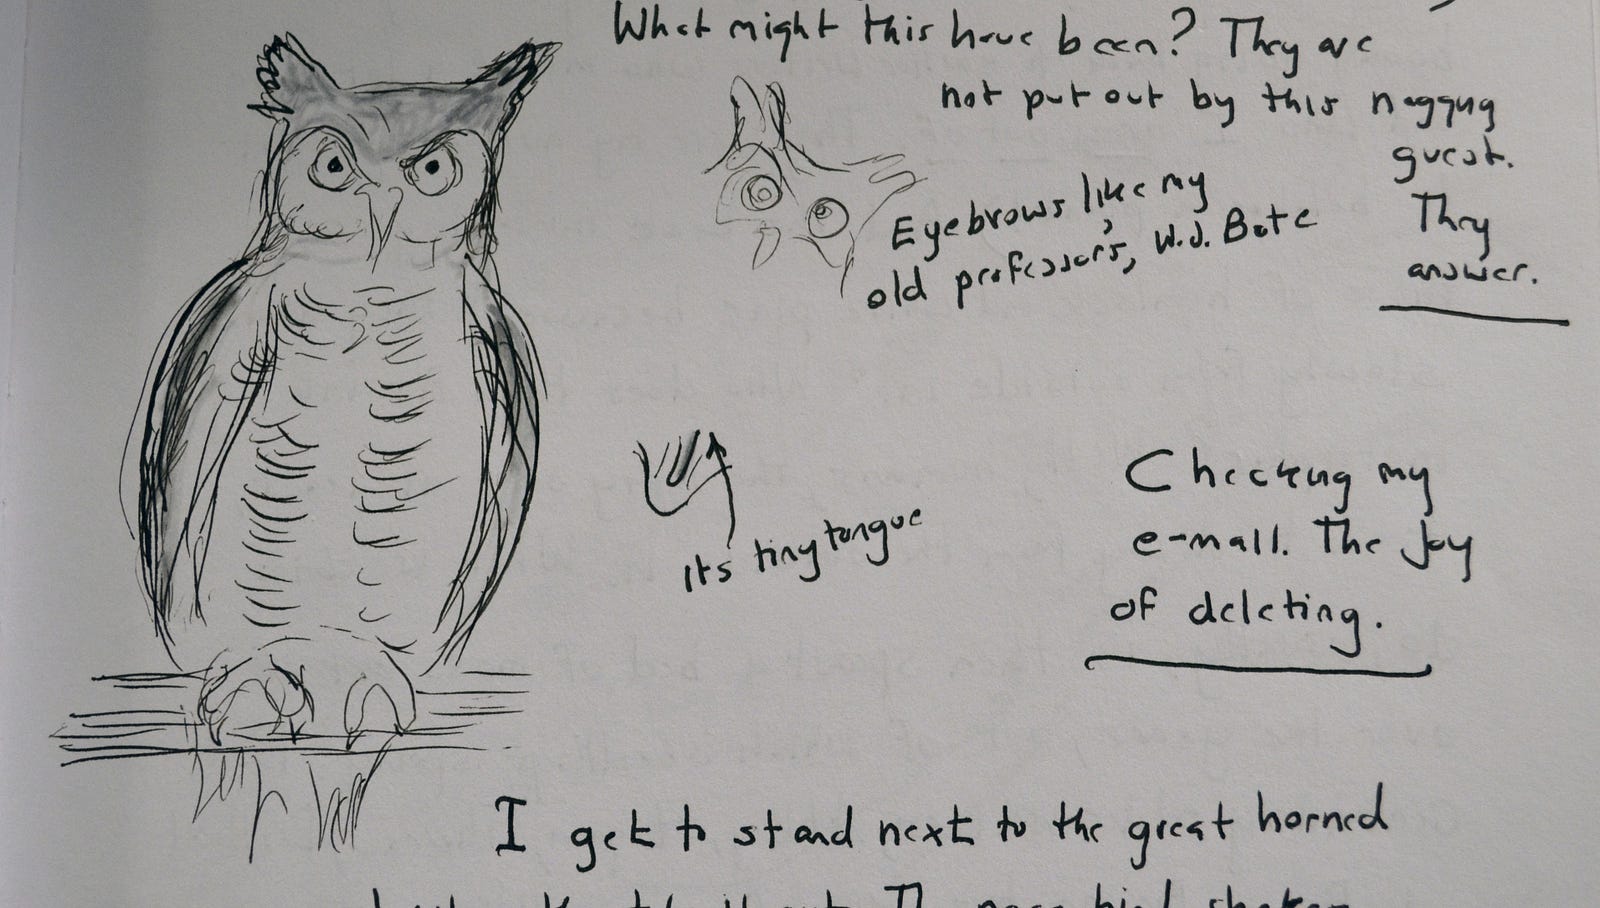 What might this have been? They are
not put out by this nagging
guest.
They
answer.
Eyebrows like my
old professor's, W.J. Bate
Its tiny tongue
Checking my
e-mail. The joy
of deleting.
I get to stand next to the great horned